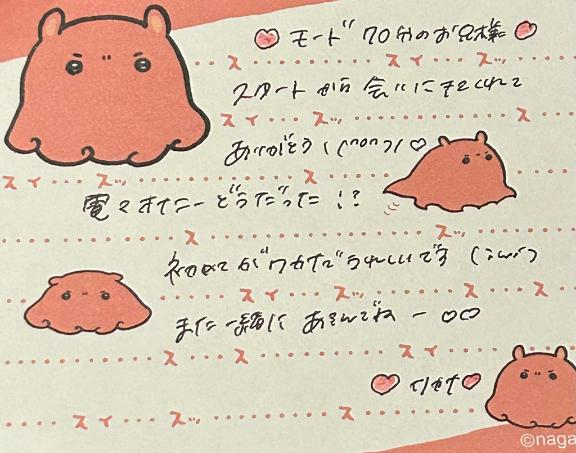 モード 70分のお兄様
ス スイ ス
スタートから 会いにきてくれて
スイ ズッ ス
ありがとう！
スイ ズッ ス
どうだった！？
ス ズッ
初めてがワカナでうれしいです
スイ ズッ ス ス
また一緒に あそんでねー ♡♡
ス ス スイ
スイ ズッ ス
©naga